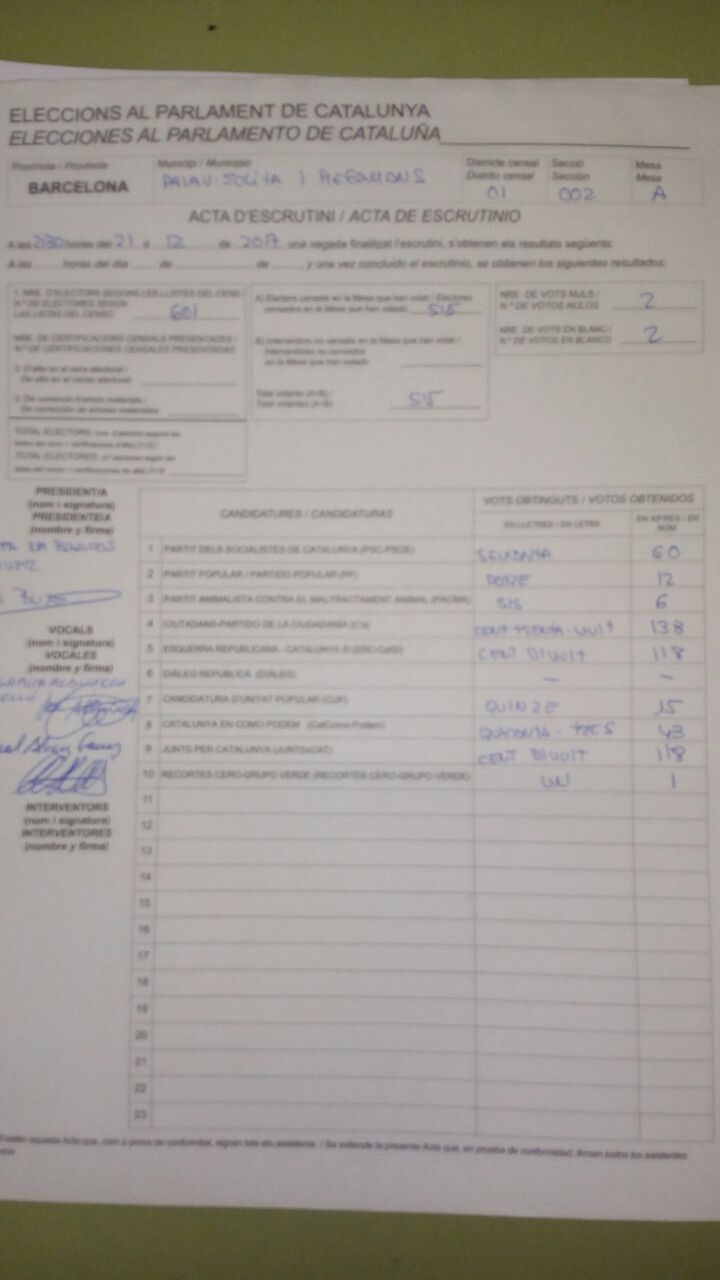 ELECCIONS AL PARLAMENT DE CATALUNYA
ELECCIONES AL PARLAMENTO DE CATALUÑA
Provincia / Provincia
BARCELONA
Municipi / Municipio
PALAU-SOLITA I PLEGAMANS
Districte censal
Distrito censal
01
Secció
Sección
002
Mesa
Mesa
A
ACTA D'ESCRUTINI / ACTA DE ESCRUTINIO
A les hores del 21 d 12 de 2017, una vegada finalitzat l'escrutini, s'obtenen els resultats següents:
A las horas del día de de y una vez concluido el escrutinio, se obtienen los siguientes resultados:
1. NRE. D'ELECTORS SEGONS LES LLISTES DEL CENS /
N.º DE ELECTORES SEGÚN
LAS LISTAS DEL CENSO 601
NRE. DE CERTIFICACIONS CENSALS PRESENTADES /
N.º DE CERTIFICACIONES CENSALES PRESENTADAS
2. D'alta en el cens electoral /
De alta en el censo electoral
3. De correcció d'errors materials /
De corrección de errores materiales
A) Electors censats en la Mesa que han votat / Electores
censados en la Mesa que han votado 515
B) Interventors no censats en la Mesa que han votat /
Interventores no censados
en la Mesa que han votado
Total votants (A+B) /
Total votantes (A+B) 515
NRE. DE VOTS NULS /
N.º DE VOTOS NULOS 2
NRE. DE VOTS EN BLANC /
N.º DE VOTOS EN BLANCO 2
TOTAL ELECTORS
TOTAL ELECTORES
PRESIDENT/A
(nom i signatura)
PRESIDENTE/A
(nombre y firma)
VOCALS
(nom i signatura)
VOCALES
(nombre y firma)
INTERVENTORS
(nom i signatura)
INTERVENTORES
(nombre y firma)
CANDIDATURES / CANDIDATURAS
VOTS OBTINGUTS / VOTOS OBTENIDOS
EN LLETRES / EN LETRA
EN XIFRES / EN NÚM
1 PARTIT DELS SOCIALISTES DE CATALUNYA (PSC-PSOE) SEIXANTA 60
2 PARTIT POPULAR / PARTIDO POPULAR (PP) DOTZE 12
3 PARTIT ANIMALISTA CONTRA EL MALTRACTAMENT ANIMAL (PACMA) SIS 6
4 CIUTADANS-PARTIDO DE LA CIUDADANÍA (C's) CENT TRENTA-VUIT 138
5 ESQUERRA REPUBLICANA - CATALUNYA SÍ (ERC-CatSí) CENT DIVUIT 118
6 DIÀLEG REPUBLICÀ (DIÀLEG) — —
7 CANDIDATURA D'UNITAT POPULAR (CUP) QUINZE 15
8 CATALUNYA EN COMÚ-PODEM (CatComú-Podem) QUARANTA-TRES 43
9 JUNTS PER CATALUNYA (JUNTSxCAT) CENT DIVUIT 118
10 RECORTES CERO-GRUPO VERDE (RECORTES CERO-GRUPO VERDE) UN 1
11
12
13
14
15
16
17
18
19
20
21
22
23
aquesta Acta que, com a prova de conformitat, signen tots els assistents. / Se extiende la presente Acta que, en prueba de conformidad, firman todos los asistentes.